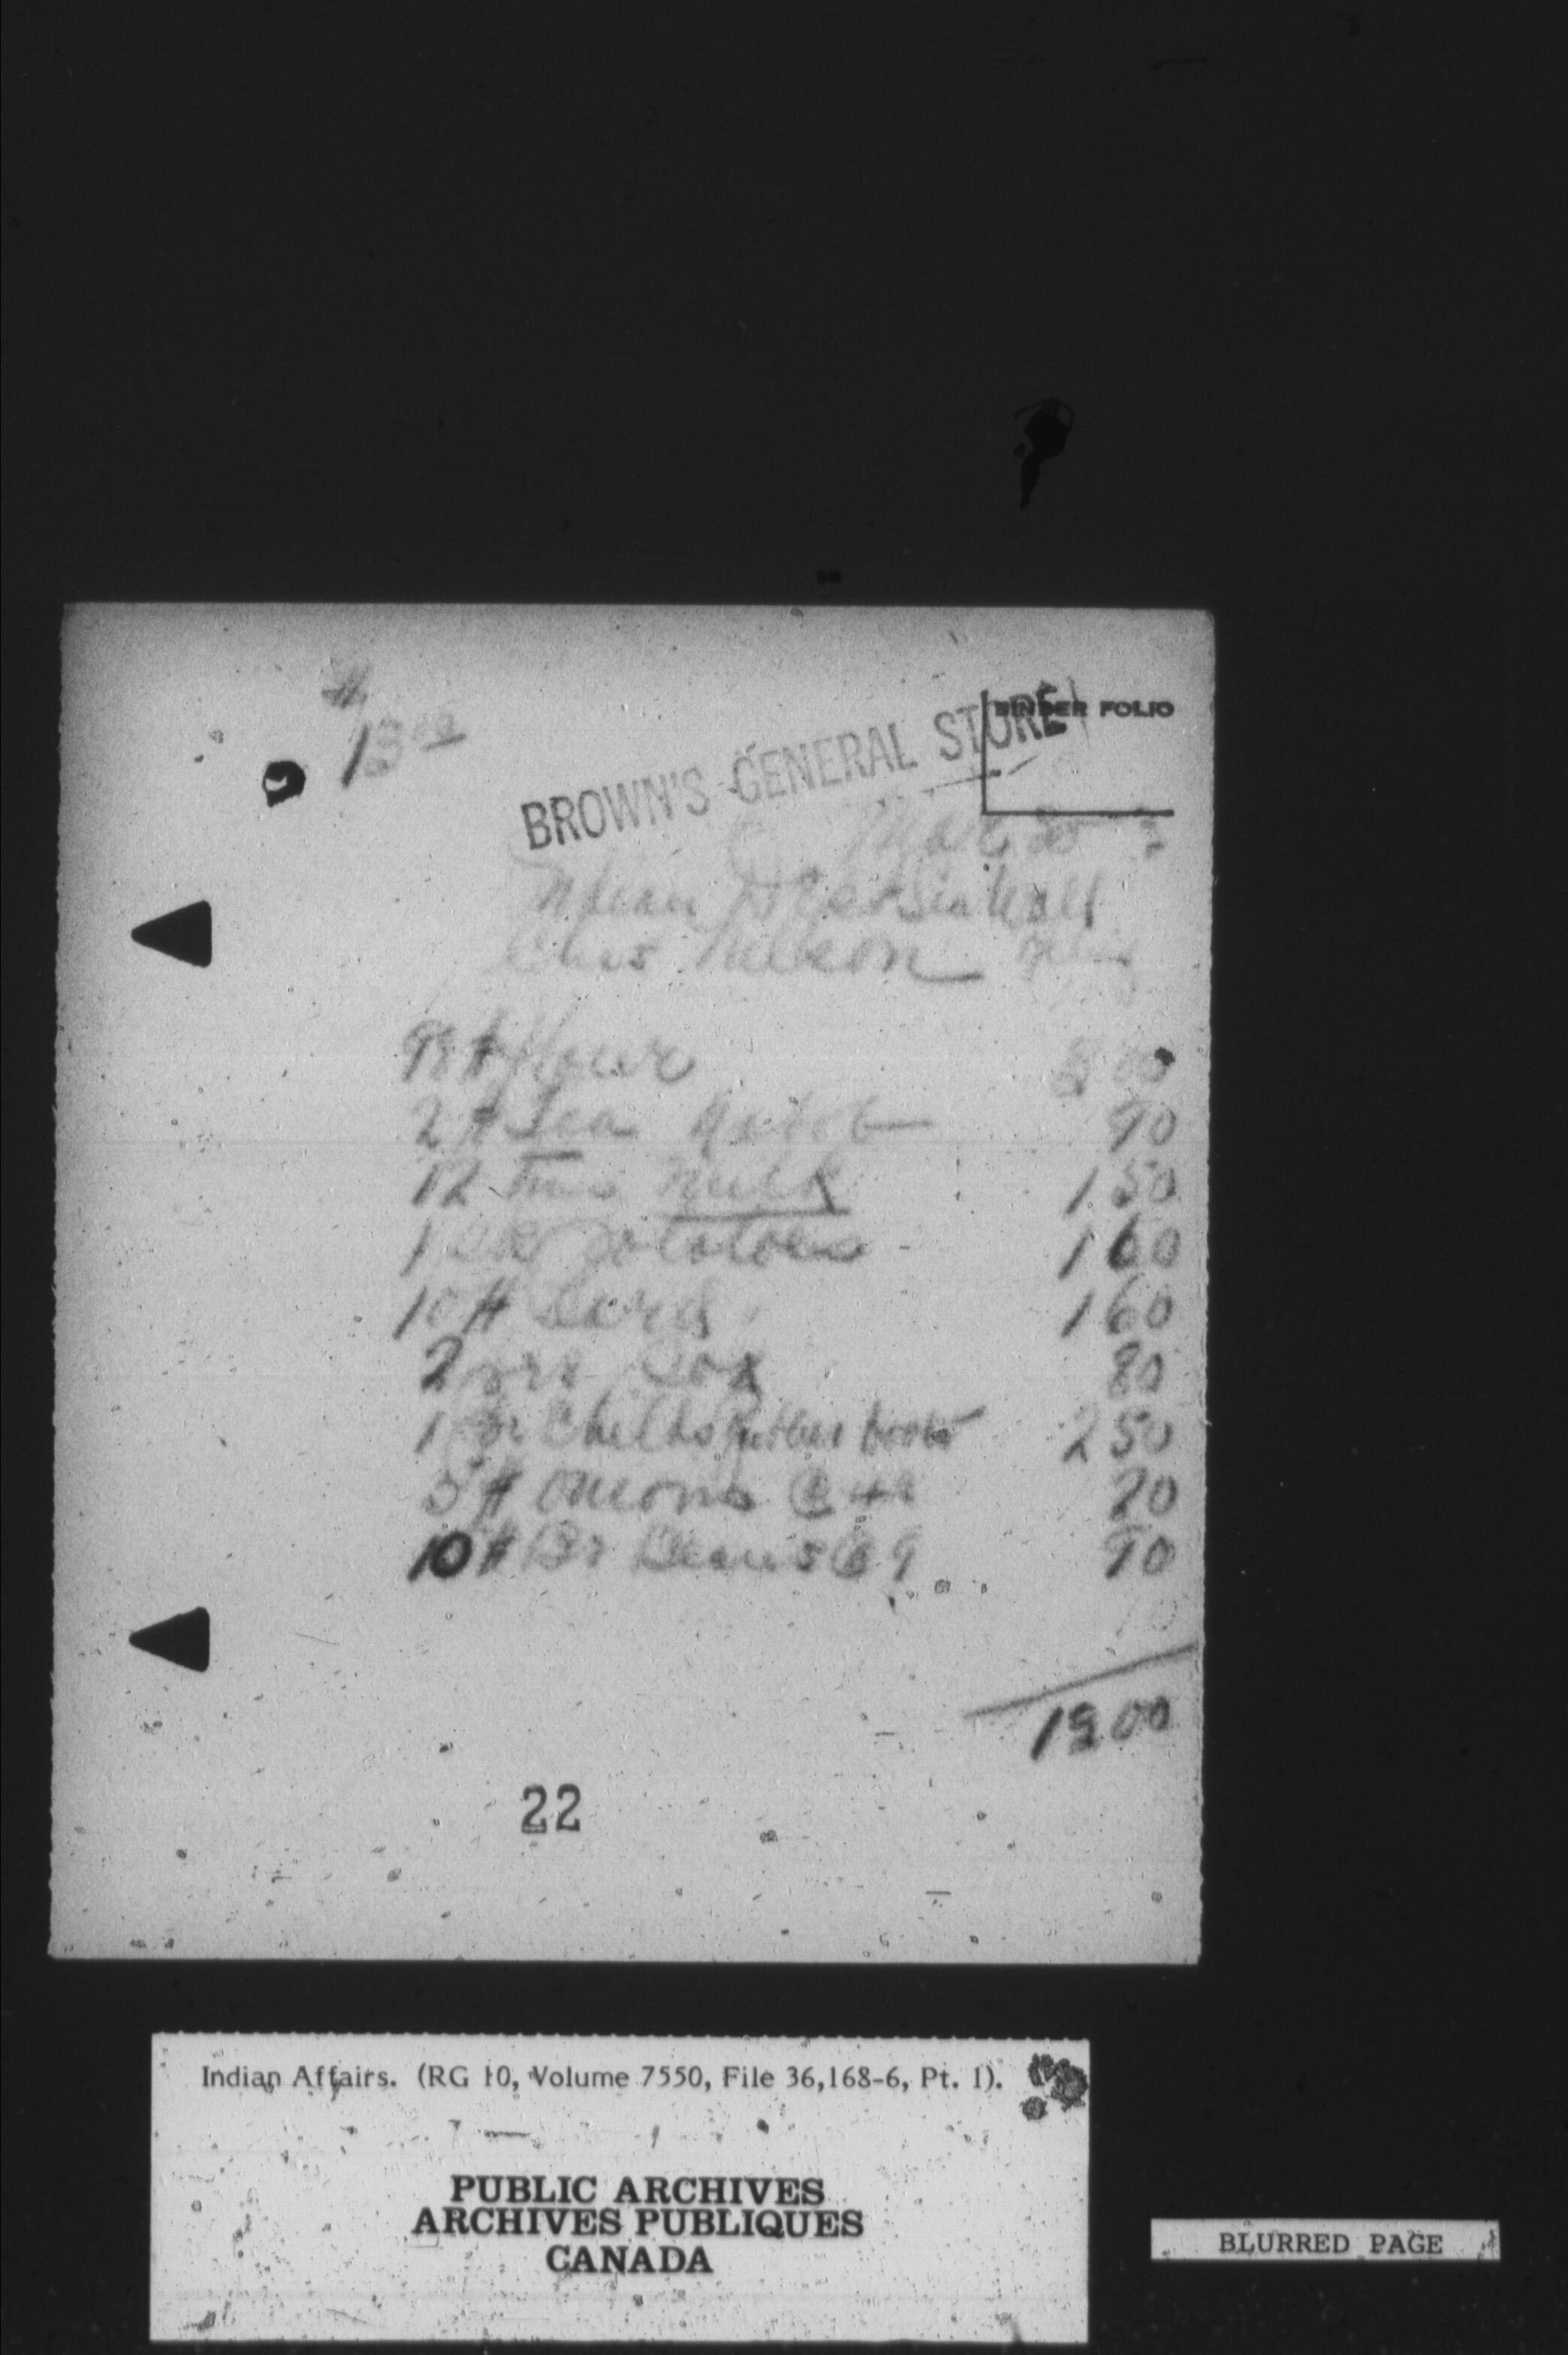 13 00
BINDER FOLIO
BROWN'S GENERAL STORE
Chas
98 # flour
2 # Tea 90
12 Tins Milk 1 50
1 sk potatoes 1 60
10 # Lard 1 60
2 prs Sox 80
1 pr Childs rubber boots 2 50
5 # onions @ 4 20
10 # Br Beans @ 9 90
00
22
Indian Affairs. (RG 10, Volume 7550, File 36,168-6, Pt. 1).
PUBLIC ARCHIVES
ARCHIVES PUBLIQUES
CANADA
BLURRED PAGE